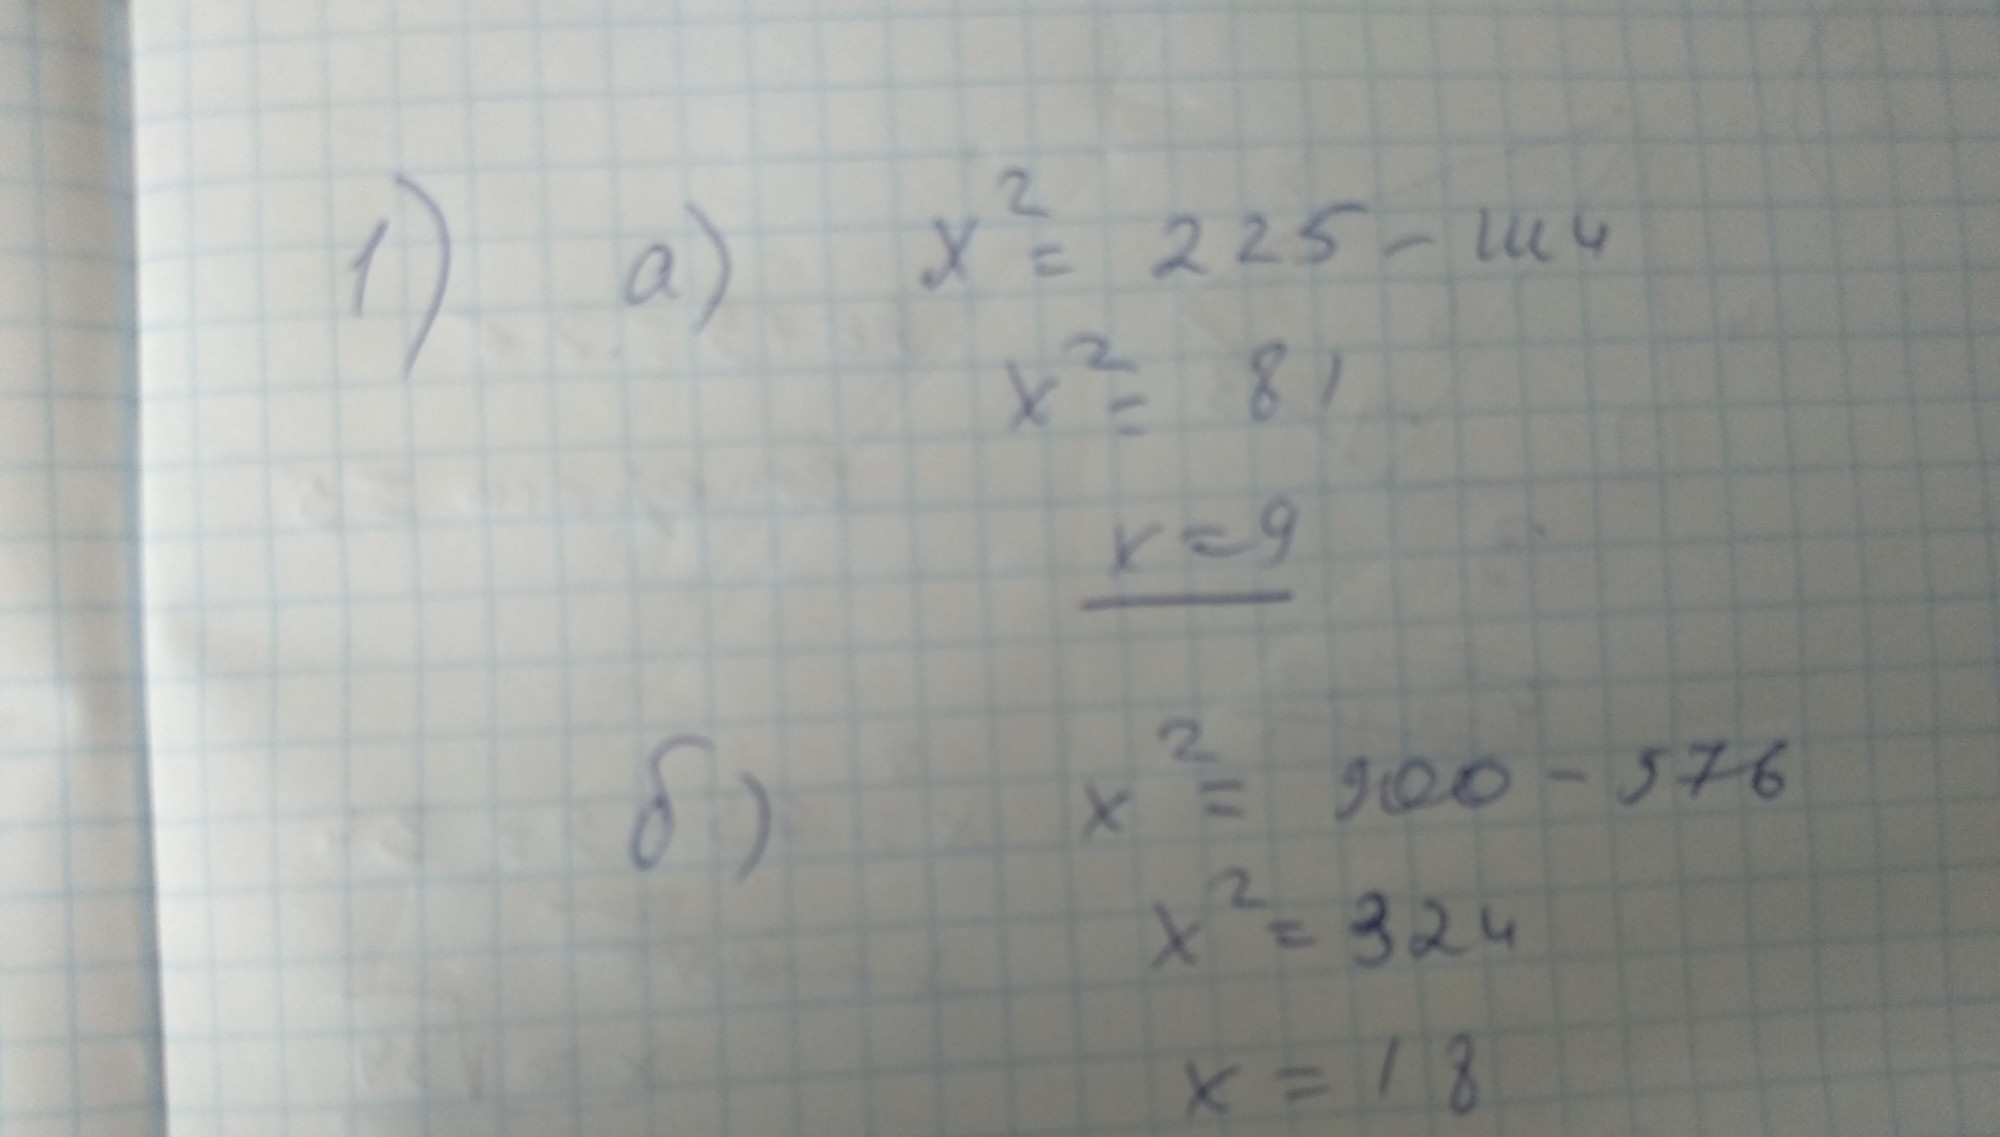 1) а) x² = 225 – 144
x² = 81
x = 9
б) x² = 900 – 576
x² = 324
x = 18